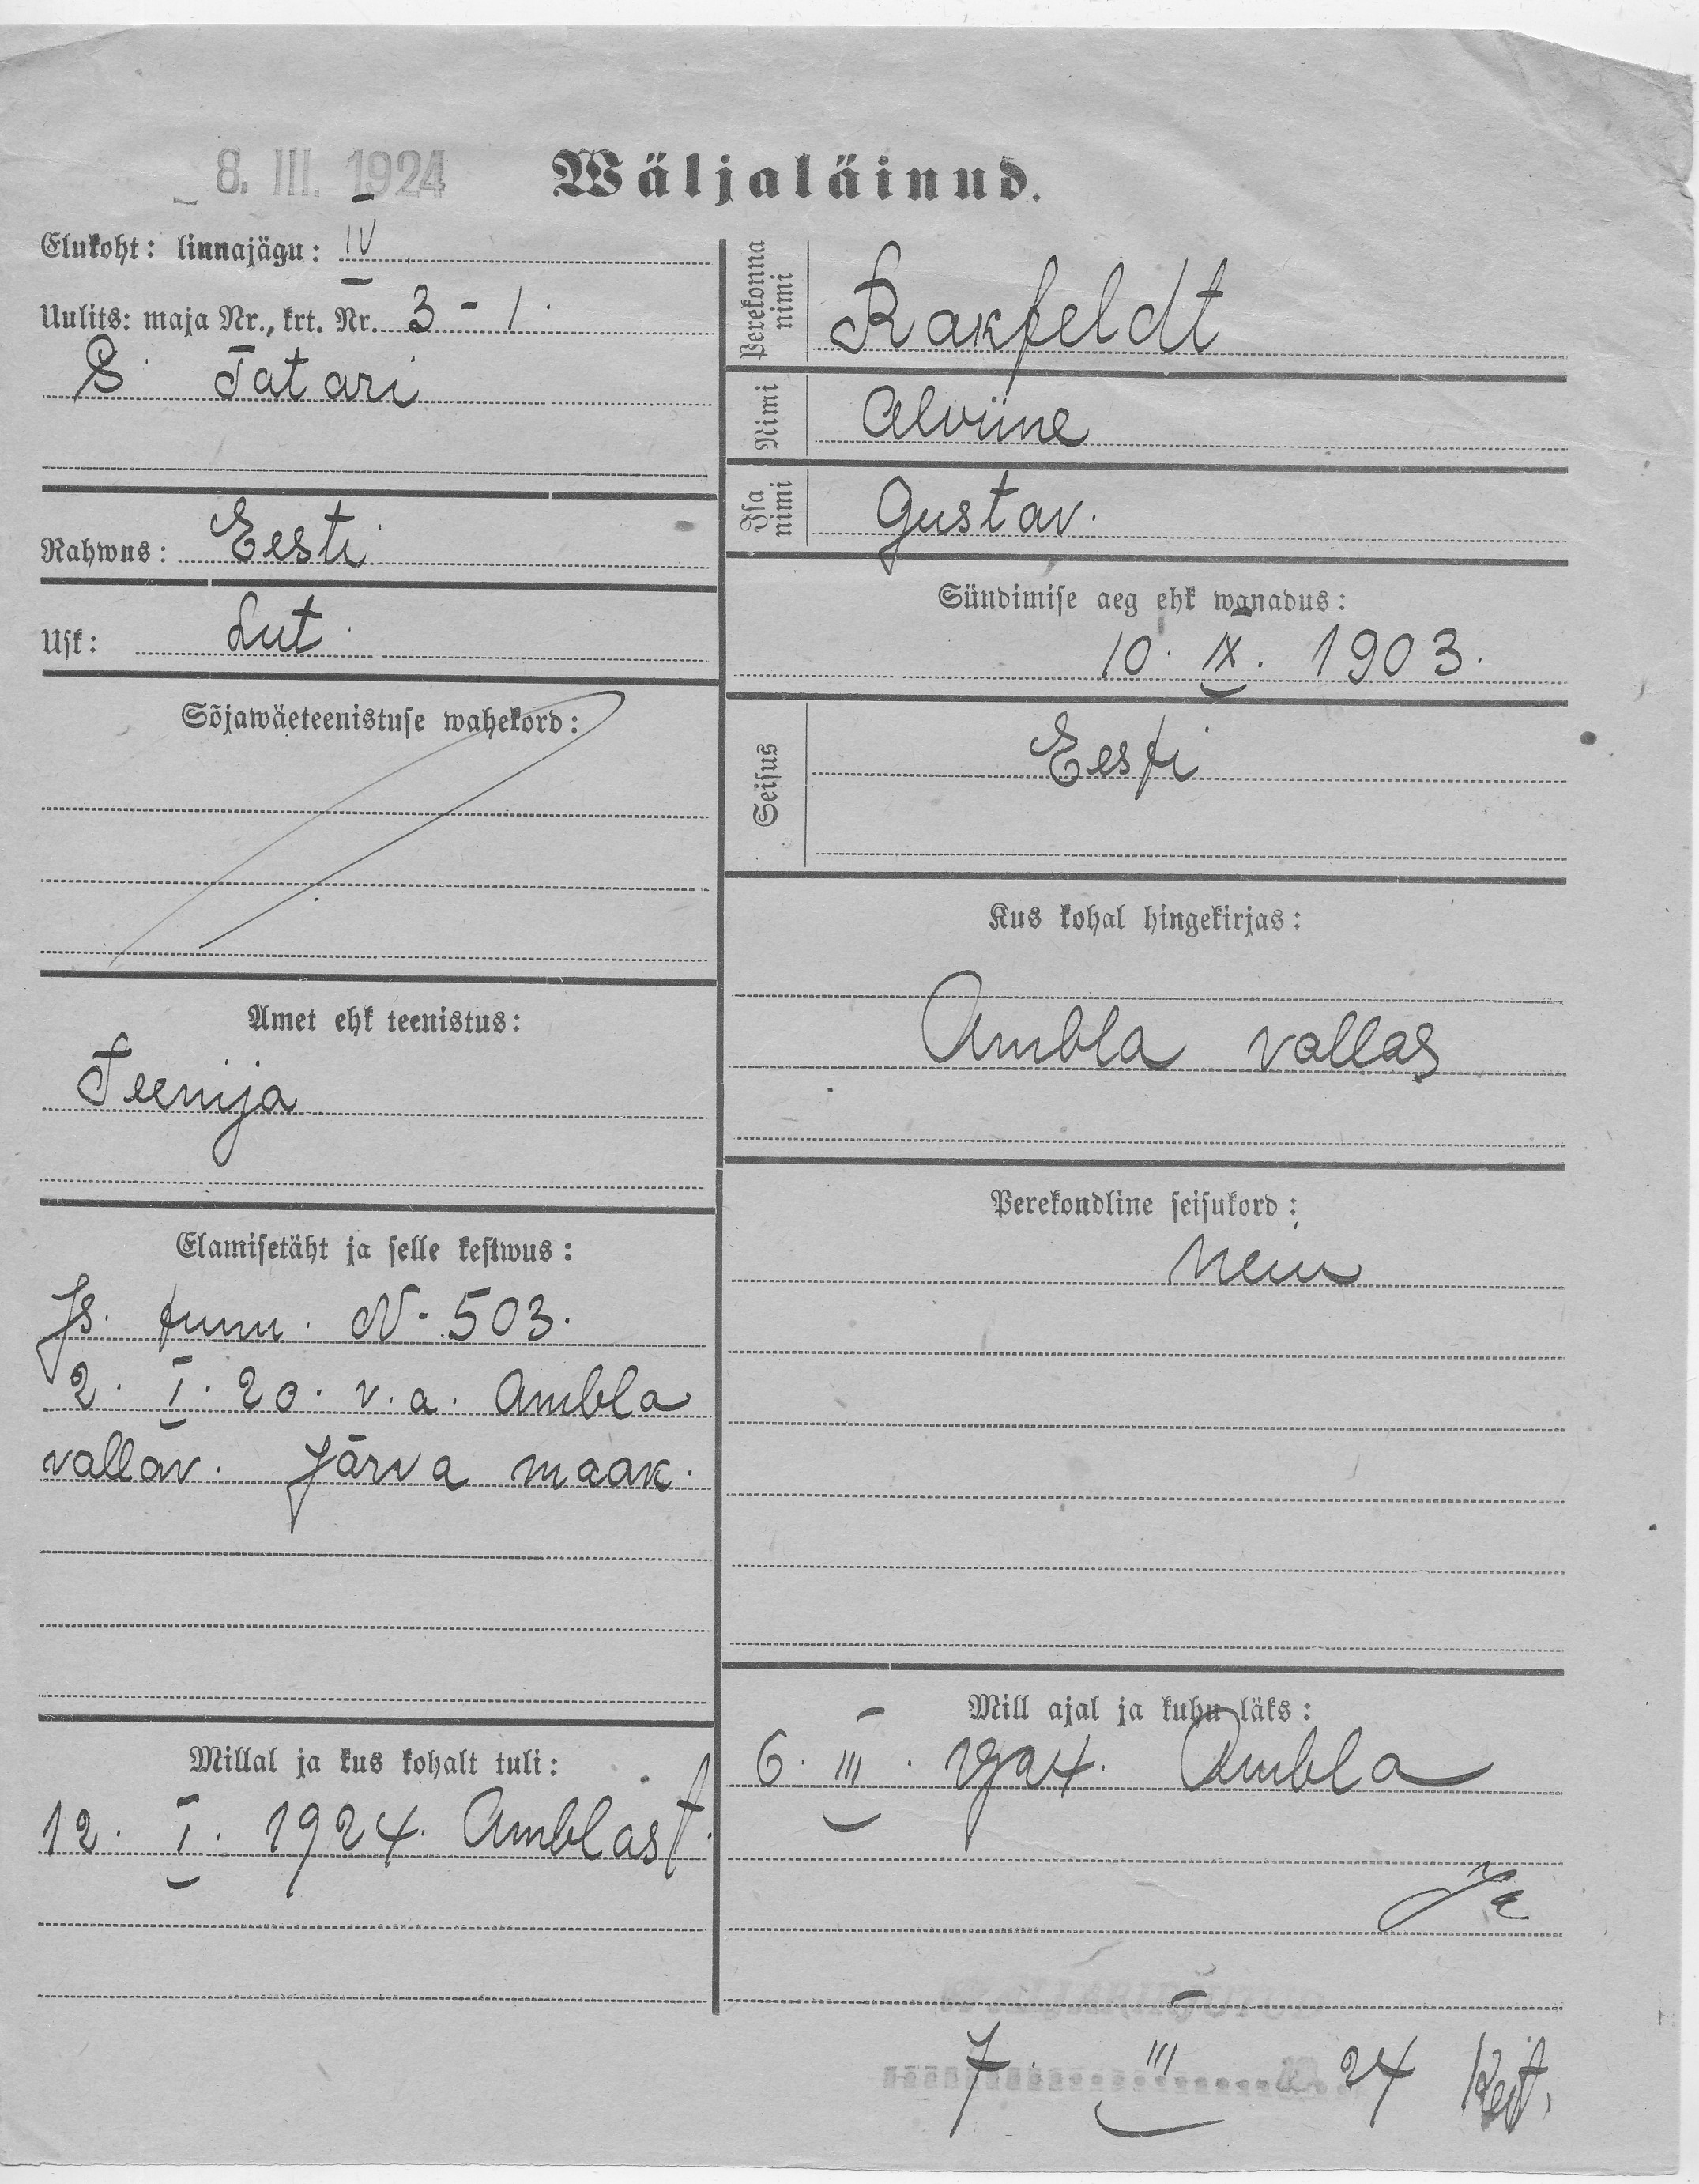 8. III. 1924
Wäljaläinud.
Elukoht: linnajägu: IV
Uulits: maja Nr., krt. Nr. 3 - 1.
S Tatari
Rahwus: Eesti
Usk: Lut.
Sõjawäeteenistuse wahekord:
Amet ehk teenistus:
Teenija
Elamisetäht ja selle kestwus:
Is. tunn. N. 503.
2. I. 20. v. a. Ambla
vallav. Järva maak.
Millal ja kus kohalt tuli:
12. I. 1924. Amblast.
Perekonna nimi
Rakfeldt
Nimi
Alviine
Isa nimi
Gustav.
Sündimise aeg ehk wanadus:
10. IX. 1903.
Seisus
Eesti
Kus kohal hingekirjas:
Ambla vallas
Perekondline seisukord:
neiu
Mill ajal ja kuhu läks:
6. III. 1924. Ambla
7. III 24